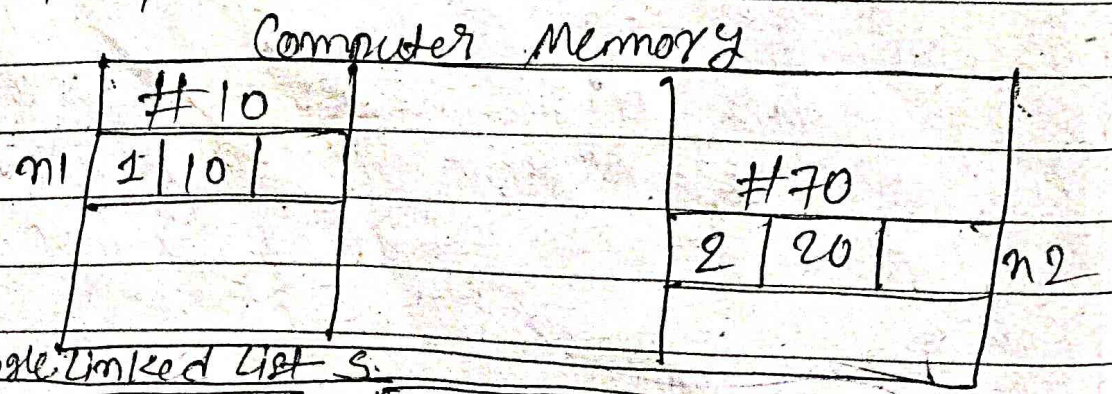 Computer Memory
#10
n1 1 10
#70
2 20 n2
Linked List S.